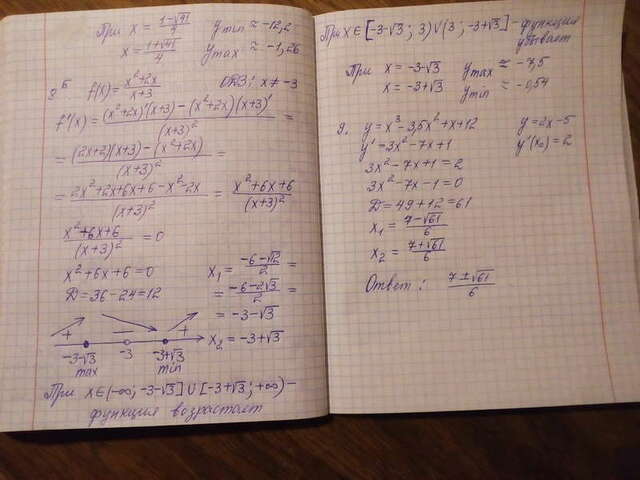 При x = 1-√41/4 y min ≈ -12,2
x = 1+√41/4 y max ≈ -1,26
8 Б f(x) = x²+2x/x+3 ОДЗ: x ≠ -3
f'(x) = (x²+2x)'(x+3) - (x²+2x)(x+3)'/(x+3)² =
= (2x+2)(x+3) - (x²+2x)/(x+3)² =
= 2x²+2x+6x+6-x²-2x/(x+3)² = x²+6x+6/(x+3)²
x²+6x+6/(x+3)² = 0
x²+6x+6=0 x₁ = -6-√12/2 =
D=36-24=12 = -6-2√3/2 =
= -3-√3
+ — + x₂ = -3+√3
-3-√3 -3 -3+√3
max min
При x∈(-∞; -3-√3] ∪ [-3+√3; +∞) -
функция возрастает
При x∈[-3-√3; 3) ∪ (3; -3+√3] - функция
убывает
При x = -3-√3 y max ≈ -7,5
x = -3+√3 y min ≈ -0,54
9. y = x³-3,5x²+x+12 y = 2x-5
y' = 3x²-7x+1 y'(x₀) = 2
3x²-7x+1 = 2
3x²-7x-1=0
D = 49+12=61
x₁ = 7-√61/6
x₂ = 7+√61/6
Ответ: 7±√61/6